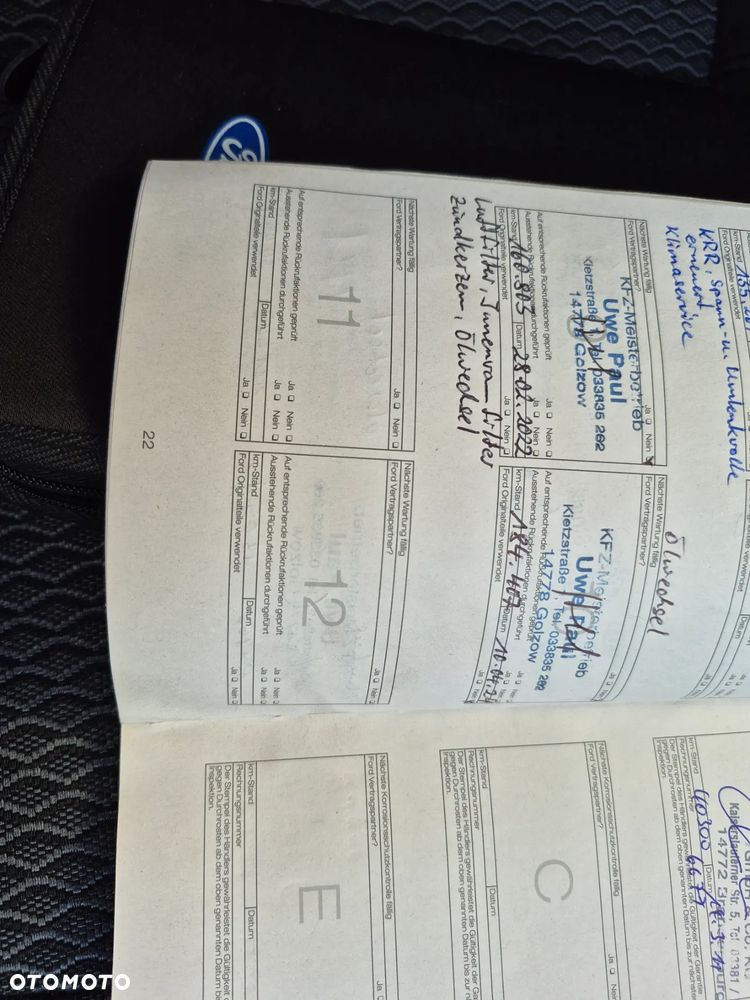 km-Stand 133.
Ford Originalteile verwendet
KRR, Spann- u. Umlenkrolle
erneuert
Klimaservice
Datum
Ja Nein
Nächste Wartung fällig
Ford Vertragspartner?
Ja Nein
KFZ-Meisterbetrieb
Uwe Paul
Kietzstraße 11 Tel. 033835 292
14778 Golzow
Auf entsprechende Rückrufaktionen geprüft
Ja Nein
Ausstehende Rückrufaktionen durchgeführt
Ja Nein
km-Stand 160.803
Datum 28.02.2022
Ford Originalteile verwendet
Ja Nein
Luftfilter, Innenraumfilter
Zündkerzen, Ölwechsel
Nächste Wartung fällig
Ford Vertragspartner?
Ja Nein
11
Auf entsprechende Rückrufaktionen geprüft
Ja Nein
Ausstehende Rückrufaktionen durchgeführt
Ja Nein
km-Stand
Datum
Ford Originalteile verwendet
Ja Nein
22
Ölwechsel
Nächste Wartung fällig
Ford Vertragspartner?
Ja Nein
KFZ-Meisterbetrieb
Uwe Paul
Kietzstraße Tel. 033835 292
14778 Golzow
Auf entsprechende Rückrufaktionen geprüft
Ja Nein
Ausstehende Rückrufaktionen durchgeführt
Ja Nein
km-Stand 184.407
Datum
Ford Originalteile verwendet
Ja
Nächste Wartung fällig
Ford Vertragspartner?
Ja Nein
12
Auf entsprechende Rückrufaktionen geprüft
Ja Nein
Ausstehende Rückrufaktionen durchgeführt
Ja Nein
km-Stand
Datum
Ford Originalteile verwendet
Ja Nein
Kaiserslauterner Str. 5, Tel. 03381 /
14772
km-Stand
Rechnungsnummer
Datum
Der Stempel des Händlers gewährleistet die Gültigkeit der Garantie
gegen Durchrosten ab dem oben genannten Datum bis zur
Nächste Korrosionsschutzkontrolle fällig
Ford Vertragspartner?
Ja Nein
C
km-Stand
Datum
Rechnungsnummer
Der Stempel des Händlers gewährleistet die Gültigkeit der
gegen Durchrosten ab dem oben genannten Datum bis zur
Nächste Korrosionsschutzkontrolle fällig
Ford Vertragspartner?
Ja
E
km-Stand
Datum
Rechnungsnummer
Der Stempel des Händlers gewährleistet die Gültigkeit
gegen Durchrosten ab dem oben genannten Datum
Inspektion.
OTOMOTO